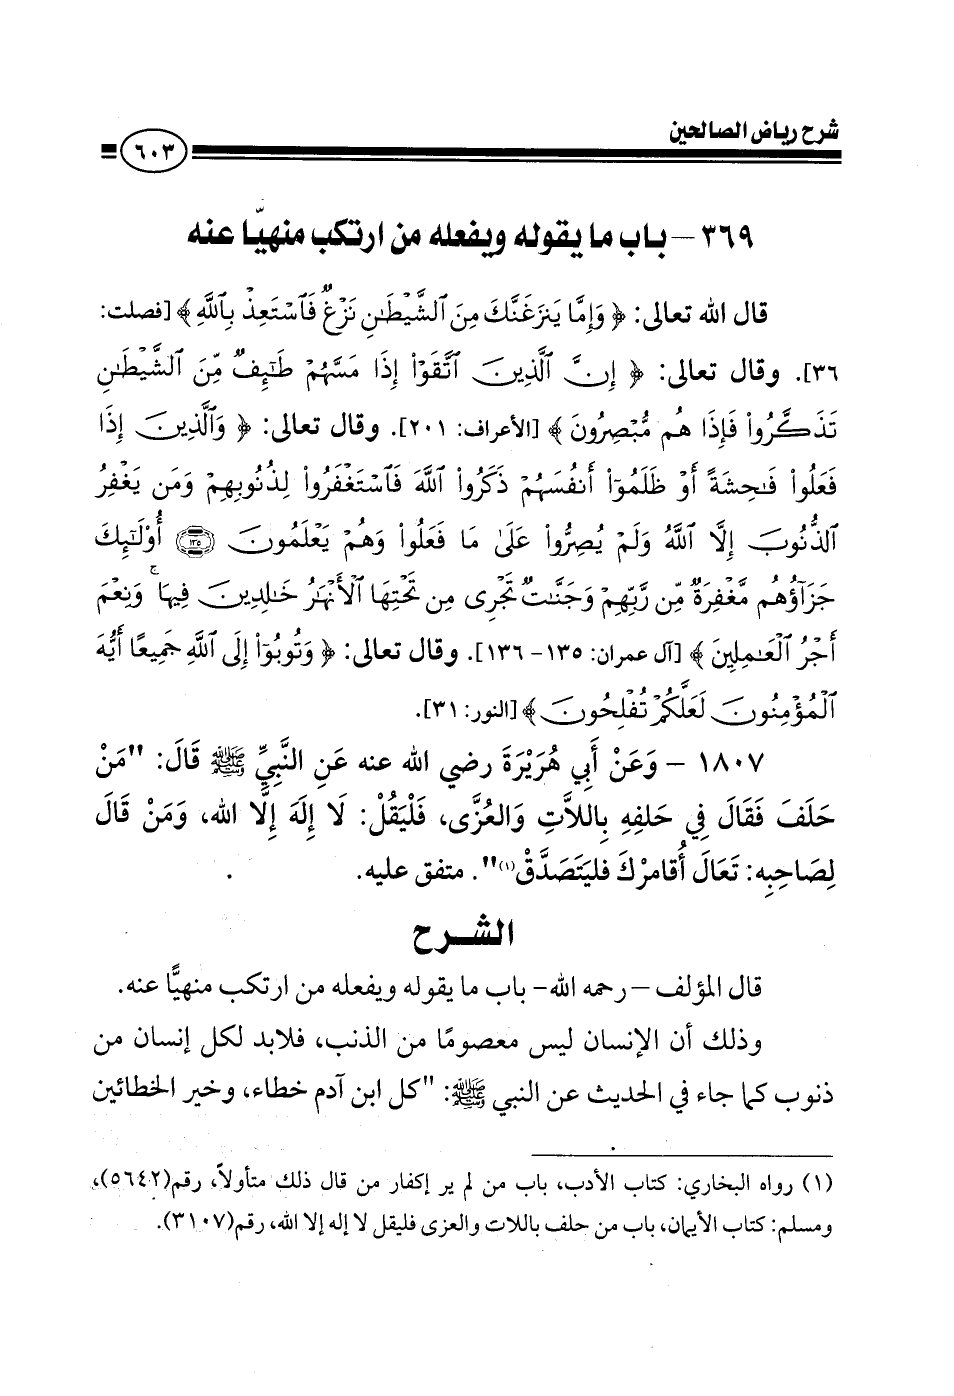 شرح رياض الصالحين
٦٠٣
٣٦٩ – باب ما يقوله ويفعله من ارتكب منهيًّا عنه
قال الله تعالى: ﴿ وَإِمَّا يَنزَغَنَّكَ مِنَ ٱلشَّيْطَٰنِ نَزْغٌ فَٱسْتَعِذْ بِٱللَّهِ ﴾ [فصلت:
٣٦]. وقال تعالى: ﴿ إِنَّ ٱلَّذِينَ ٱتَّقَوْا۟ إِذَا مَسَّهُمْ طَٰٓئِفٌ مِّنَ ٱلشَّيْطَٰنِ
تَذَكَّرُوا۟ فَإِذَا هُم مُّبْصِرُونَ ﴾ [الأعراف: ٢٠١]. وقال تعالى: ﴿ وَٱلَّذِينَ إِذَا
فَعَلُوا۟ فَٰحِشَةً أَوْ ظَلَمُوٓا۟ أَنفُسَهُمْ ذَكَرُوا۟ ٱللَّهَ فَٱسْتَغْفَرُوا۟ لِذُنُوبِهِمْ وَمَن يَغْفِرُ
ٱلذُّنُوبَ إِلَّا ٱللَّهُ وَلَمْ يُصِرُّوا۟ عَلَىٰ مَا فَعَلُوا۟ وَهُمْ يَعْلَمُونَ ﴿١٣٥﴾ أُو۟لَٰٓئِكَ
جَزَآؤُهُم مَّغْفِرَةٌ مِّن رَّبِّهِمْ وَجَنَّٰتٌ تَجْرِى مِن تَحْتِهَا ٱلْأَنْهَٰرُ خَٰلِدِينَ فِيهَا ۚ وَنِعْمَ
أَجْرُ ٱلْعَٰمِلِينَ ﴾ [آل عمران: ١٣٥ – ١٣٦]. وقال تعالى: ﴿ وَتُوبُوٓا۟ إِلَى ٱللَّهِ جَمِيعًا أَيُّهَ
ٱلْمُؤْمِنُونَ لَعَلَّكُمْ تُفْلِحُونَ ﴾ [النور: ٣١].
١٨٠٧ – وَعَنْ أَبِي هُرَيْرَةَ رضي الله عنه عَنِ النَّبِيِّ ﷺ قَالَ: "مَنْ
حَلَفَ فَقَالَ فِي حَلفِهِ بِاللاَّتِ وَالعُزَّى، فَلْيَقُلْ: لَا إِلَهَ إِلَّا الله، وَمَنْ قَالَ
لِصَاحِبِهِ: تَعَالَ أُقَامِرْكَ فَليَتَصَدَّقْ(١)". متفق عليه.
الشرح
قال المؤلف – رحمه الله – باب ما يقوله ويفعله من ارتكب منهيًّا عنه.
وذلك أن الإنسان ليس معصومًا من الذنب، فلابد لكل إنسان من
ذنوب كما جاء في الحديث عن النبي ﷺ: "كل ابن آدم خطاء، وخير الخطائين
(١) رواه البخاري: كتاب الأدب، باب من لم ير إكفار من قال ذلك متأولاً، رقم(٥٦٤٢)،
ومسلم: كتاب الأيمان، باب من حلف باللات والعزى فليقل لا إله إلا الله، رقم(٣١٠٧).